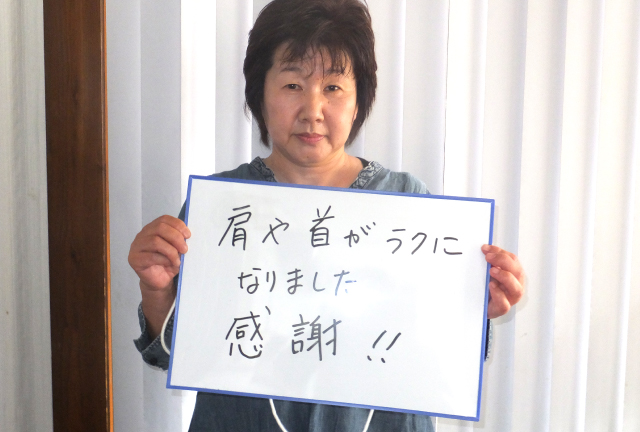 肩や首がラクに
なりました
感謝!!